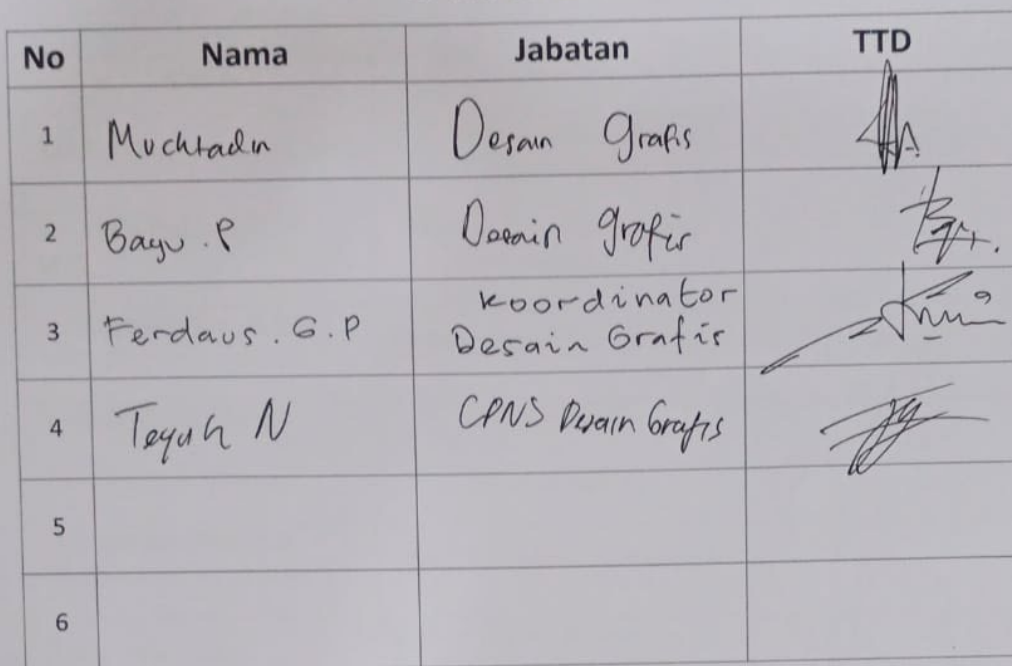 No Nama Jabatan TTD
1 Muchtadin Desain Grafis
2 Bayu . P Desain grafis
3 Ferdaus . G . P Koordinator
Desain Grafis
4 Teguh N CPNS Desain Grafis
5
6